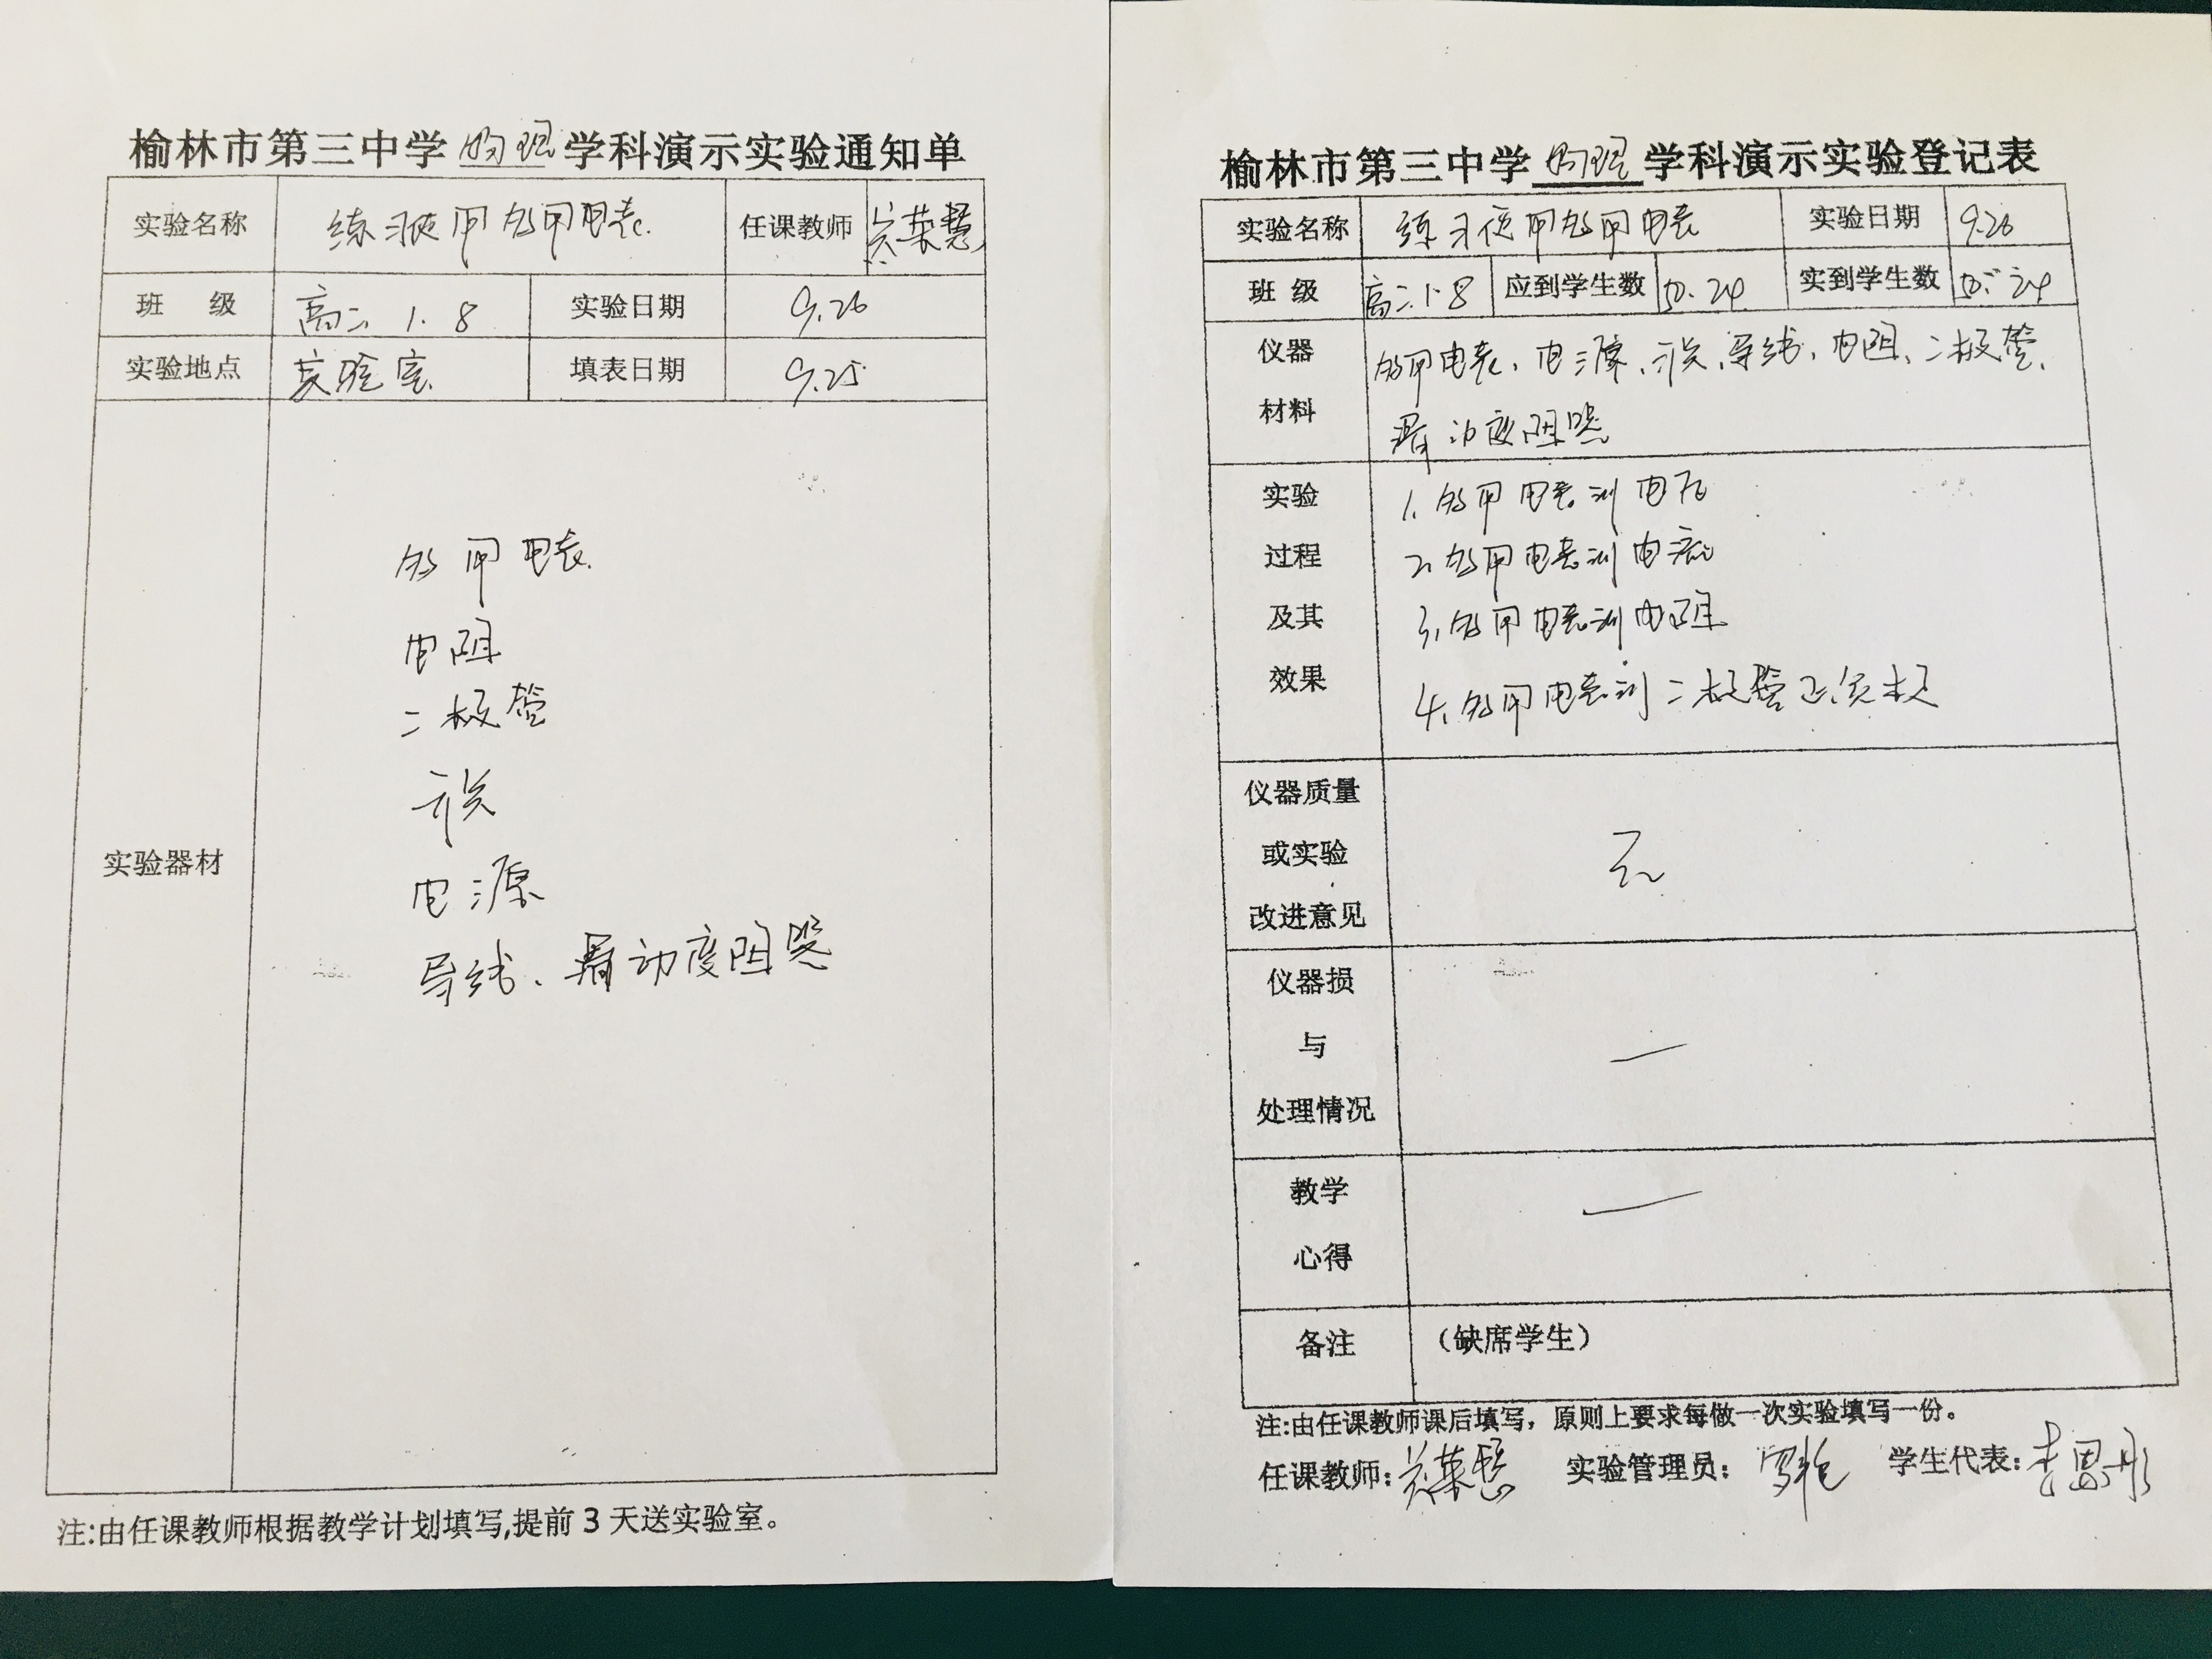 榆林市第三中学物理学科演示实验通知单
实验名称 练习使用多用电表. 任课教师 荣慧
班 级 高二 1.8 实验日期 9.26
实验地点 实验室 填表日期 9.25
实验器材
多用电表.
电阻
二极管
开关
电源
导线、滑动变阻器
注:由任课教师根据教学计划填写,提前3天送实验室。
榆林市第三中学物理学科演示实验登记表
实验名称 练习使用多用电表 实验日期 9.26
班 级 高二1.8 应到学生数 50.24 实到学生数 50.24
仪器材料
多用电表、电源、开关、导线、电阻、二极管、
滑动变阻器
实验过程及其效果
1.多用电表测电压
2.多用电表测电流
3.多用电表测电阻
4.多用电表测二极管正负极
仪器质量或实验改进意见
无
仪器损与处理情况
一
教学心得
一
备注 （缺席学生）
注:由任课教师课后填写，原则上要求每做一次实验填写一份。
任课教师: 荣慧 实验管理员: 学生代表: 李思彤